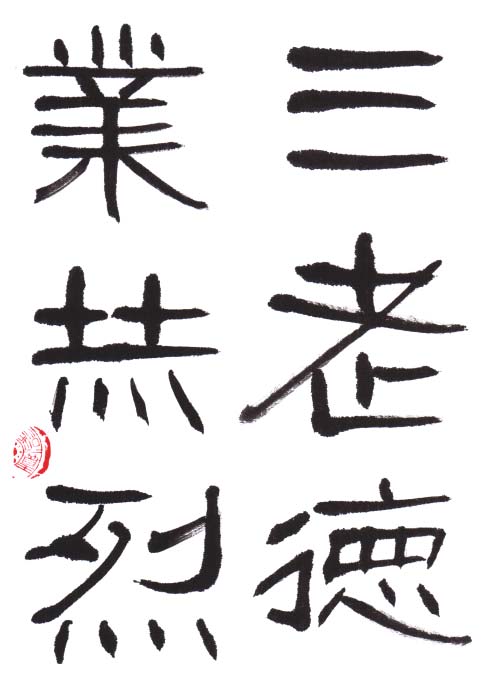 三老德
業赫烈